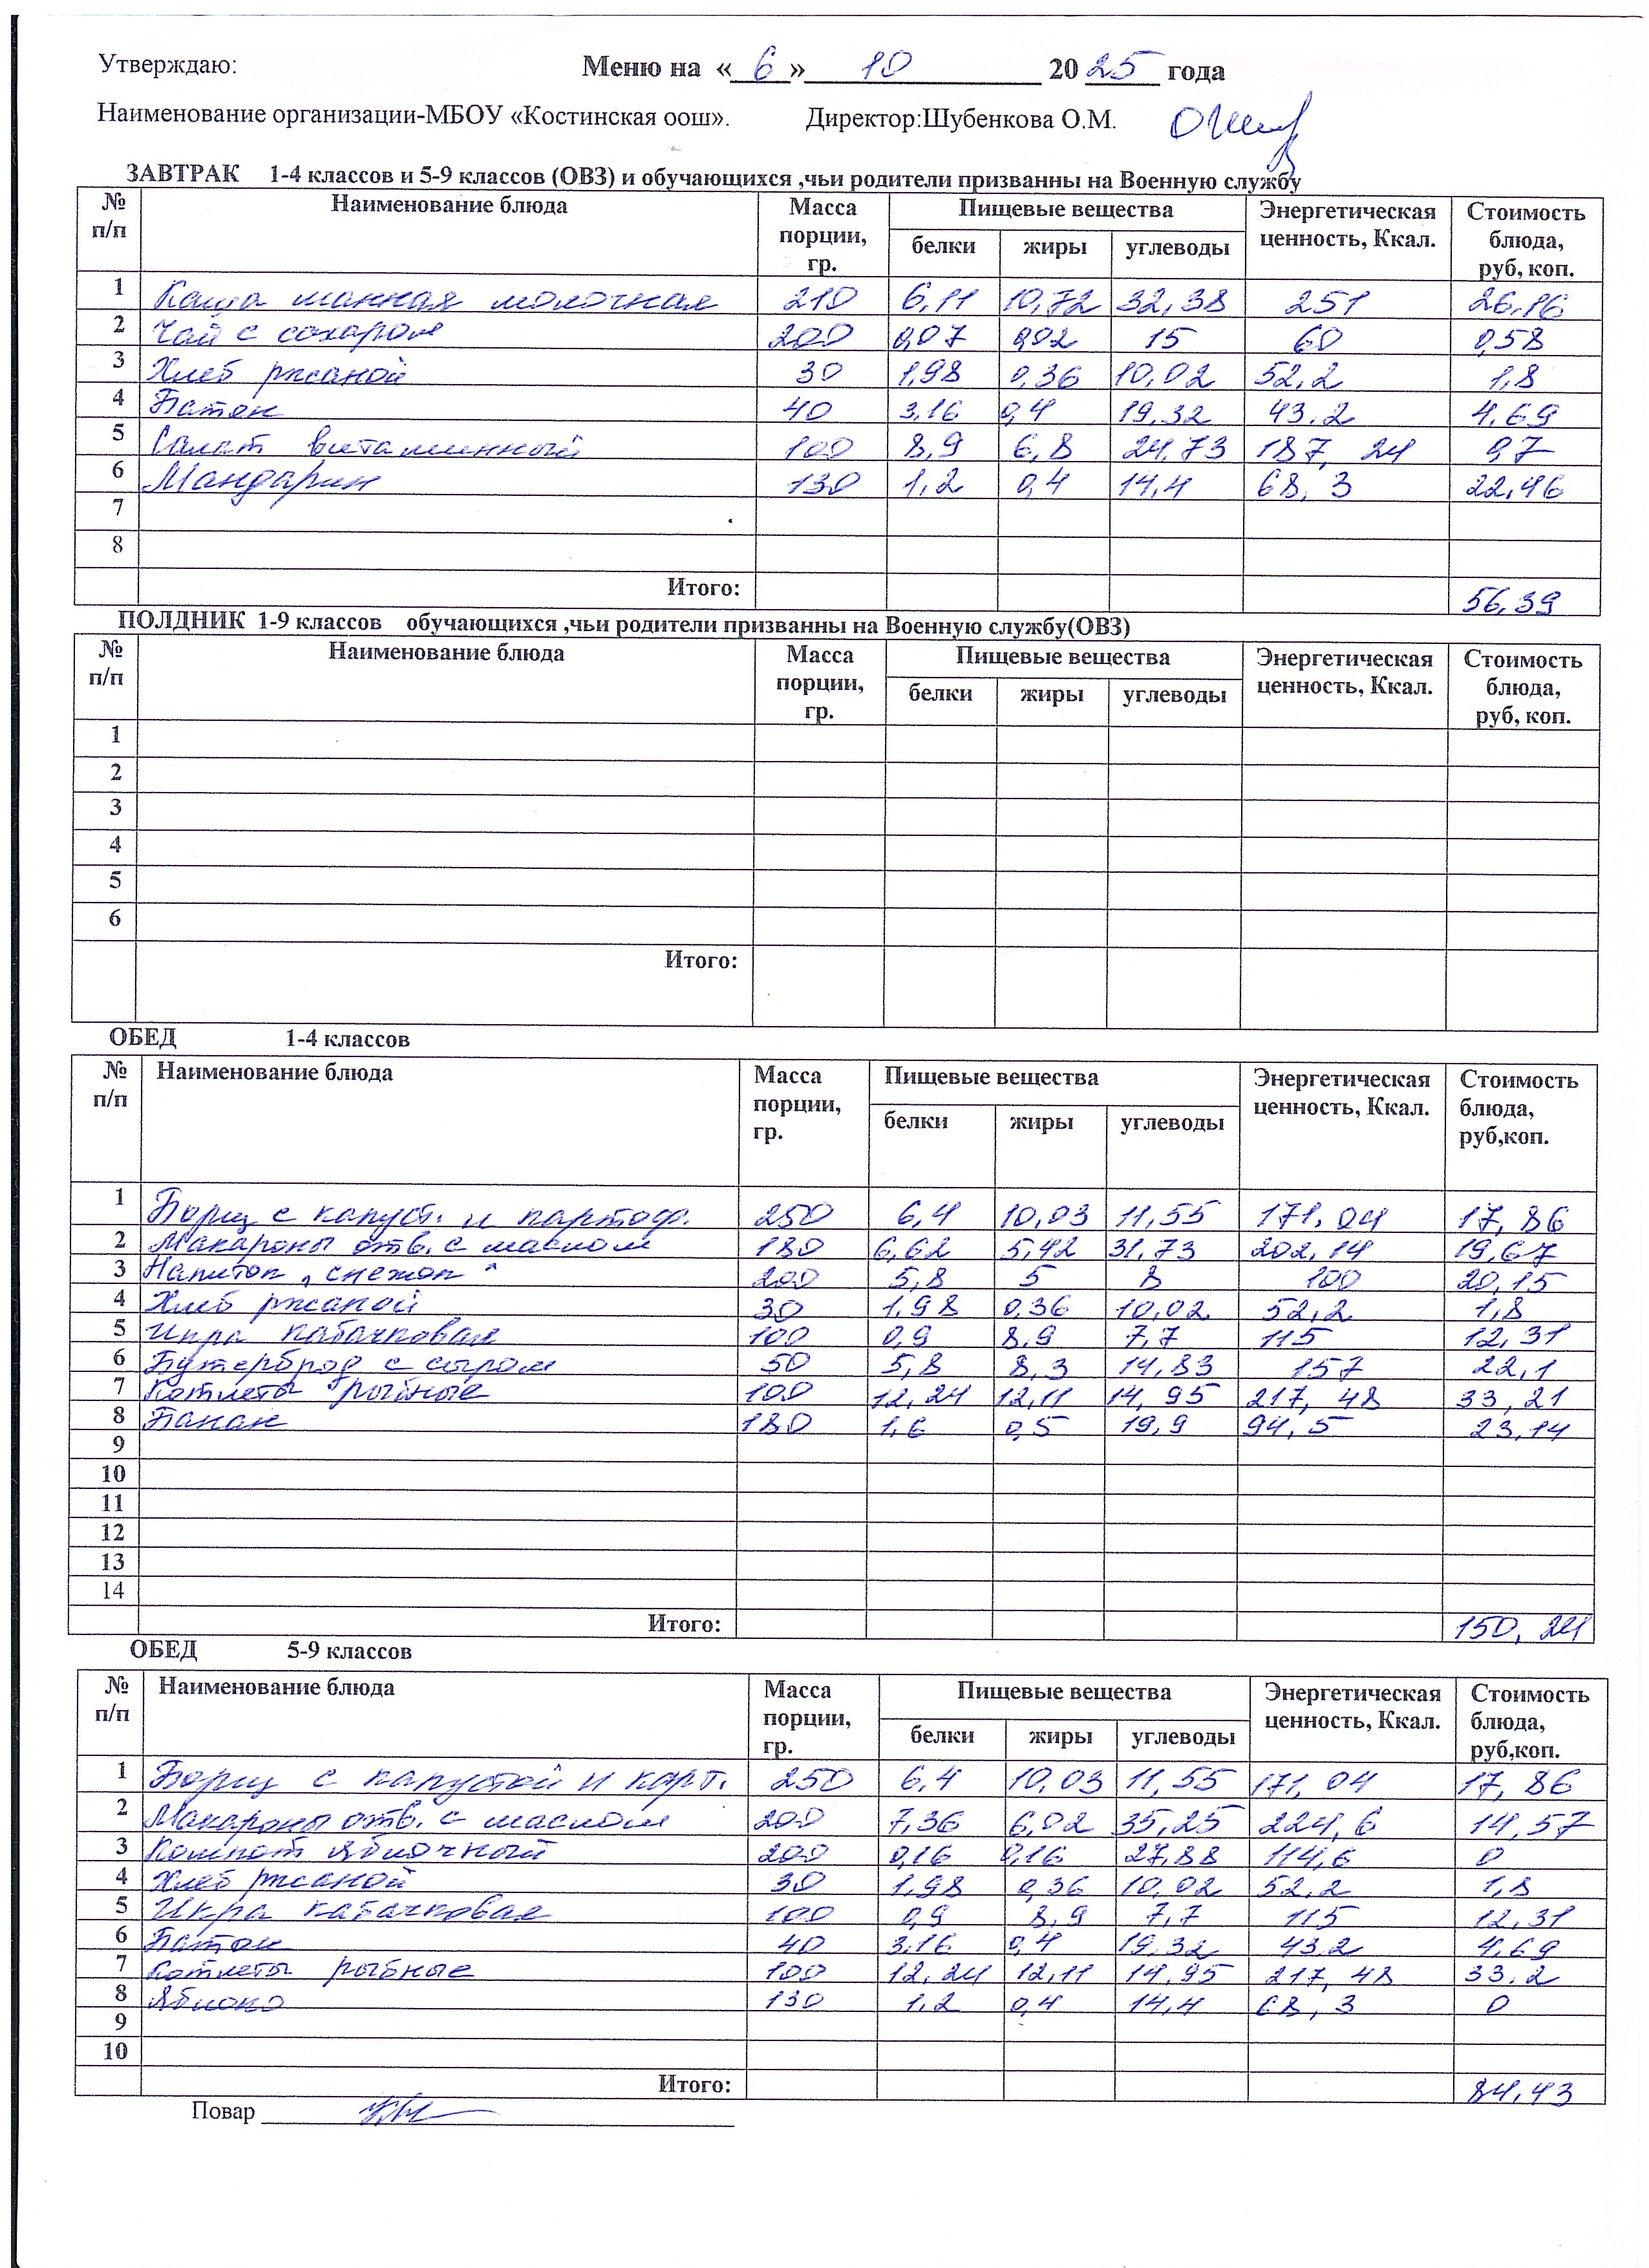 Утверждаю: Меню на «6» 10 2025 года
Наименование организации-МБОУ «Костинская оош». Директор:Шубенкова О.М.
ЗАВТРАК 1-4 классов и 5-9 классов (ОВЗ) и обучающихся ,чьи родители призванны на Военную службу
№ п/п Наименование блюда Масса порции, гр. Пищевые вещества Энергетическая ценность, Ккал. Стоимость блюда, руб, коп.
белки жиры углеводы
1 Каша манная молочная 210 6,11 10,72 32,38 251 26,16
2 Чай с сахаром 200 0,07 0,02 15 60 0,58
3 Хлеб ржаной 30 1,98 0,36 10,02 52,2 1,8
4 Батон 40 3,16 0,4 19,32 43,2 4,69
5 Салат витаминный 100 8,9 6,8 24,73 187,24 0,7
6 Мандарин 130 1,2 0,4 14,4 68,3 22,46
7
8
Итого: 56,39
ПОЛДНИК 1-9 классов обучающихся ,чьи родители призванны на Военную службу(ОВЗ)
№ п/п Наименование блюда Масса порции, гр. Пищевые вещества Энергетическая ценность, Ккал. Стоимость блюда, руб, коп.
белки жиры углеводы
1
2
3
4
5
6
Итого:
ОБЕД 1-4 классов
№ п/п Наименование блюда Масса порции, гр. Пищевые вещества Энергетическая ценность, Ккал. Стоимость блюда, руб,коп.
белки жиры углеводы
1 Борщ с капуст. и картоф. 250 6,4 10,03 11,55 171,04 17,86
2 Макароны отв. с маслом 180 6,62 5,42 31,73 202,14 19,67
3 Напиток „снежок" 200 5,8 5 8 100 20,15
4 Хлеб ржаной 30 1,98 0,36 10,02 52,2 1,8
5 Икра кабачковая 100 0,9 8,9 7,7 115 12,31
6 Бутерброд с сыром 50 5,8 8,3 14,83 157 22,1
7 Котлеты рыбные 100 12,24 12,11 14,95 217,48 33,21
8 Банан 180 1,6 0,5 19,9 94,5 23,14
9
10
11
12
13
14
Итого: 150,24
ОБЕД 5-9 классов
№ п/п Наименование блюда Масса порции, гр. Пищевые вещества Энергетическая ценность, Ккал. Стоимость блюда, руб,коп.
белки жиры углеводы
1 Борщ с капустой и карт. 250 6,4 10,03 11,55 171,04 17,86
2 Макароны отв. с маслом 200 7,36 6,02 35,25 224,6 14,57
3 Компот яблочный 200 0,16 0,16 27,88 114,6 0
4 Хлеб ржаной 30 1,98 0,36 10,02 52,2 1,8
5 Икра кабачковая 100 0,9 8,9 7,7 115 12,31
6 Батон 40 3,16 0,4 19,32 43,2 4,69
7 Котлеты рыбные 100 12,24 12,11 14,95 217,48 33,2
8 Яблоко 130 1,2 0,4 14,4 68,3 0
9
10
Итого: 84,43
Повар